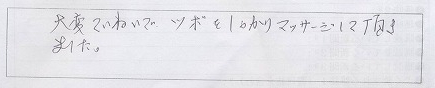 大変ていねいで ツボをしっかりマッサージして頂き
ました。